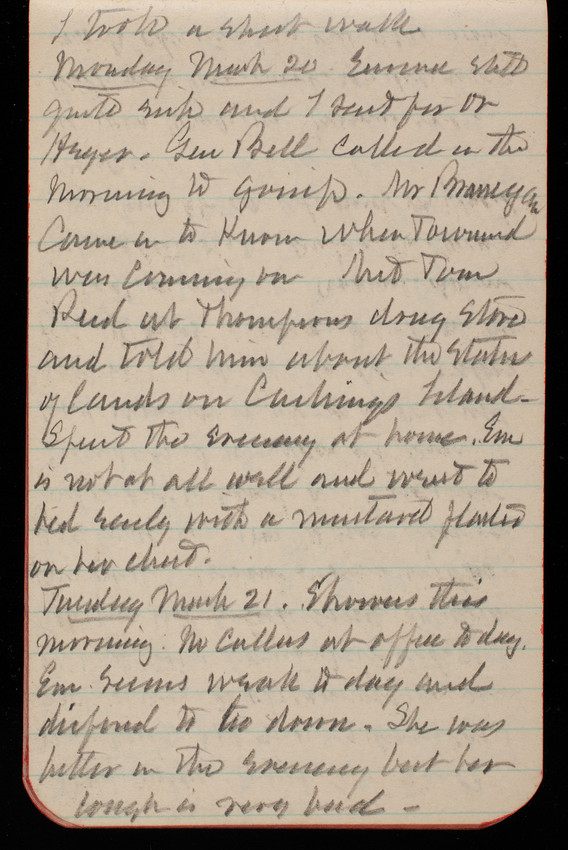 I took a short walk
Monday March 20. Emma still
quite sick and I sent for Dr
Heger. Gen Bell called in the
morning to gossip. Mr Brannegan
Came in to Know when Townsend
was coming on Met Tom
Reed at Thompsons drug store
and told him about the status
of lands on Cushings Island -
Spent the evening at home. Em
is not at all well and went to
bed early with a mustard plaster
on her chest.
Tuesday March 21. Showers this
morning. No Callers at office today.
Em seems weak to day and
disposed to lie down. She was
better in the evening but her
cough is very bad -